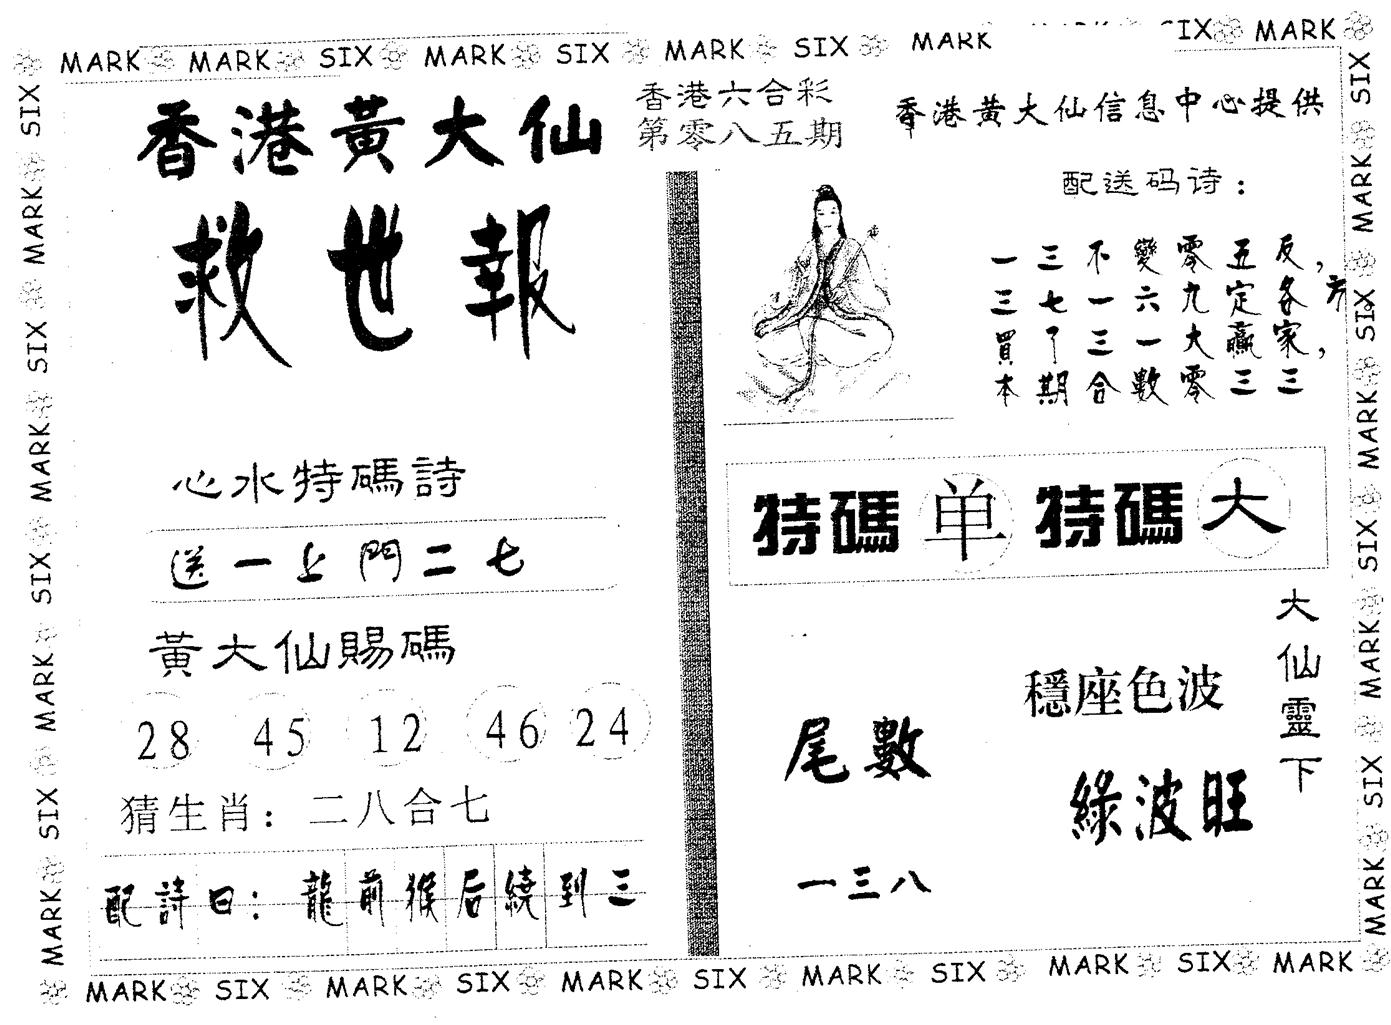 MARK MARK SIX MARK SIX MARK SIX MARK SIX MARK
香港黃大仙
救世報
香港六合彩
第零八五期
香港黃大仙信息中心提供
配送码诗：
一三不變零五反，
三七一六九定各方
買了三一大贏家，
本期合數零三三
心水特碼詩
送一上門二七
黃大仙賜碼
28 45 12 46 24
猜生肖：二八合七
配詩曰：龍前猴后繞到三
特碼 单 特碼 大
大仙靈下
穩座色波
綠波旺
尾數
一三八
SIX MARK SIX MARK SIX MARK SIX MARK
SIX MARK SIX MARK SIX MARK SIX MARK
MARK SIX MARK SIX MARK SIX MARK MARK SIX MARK